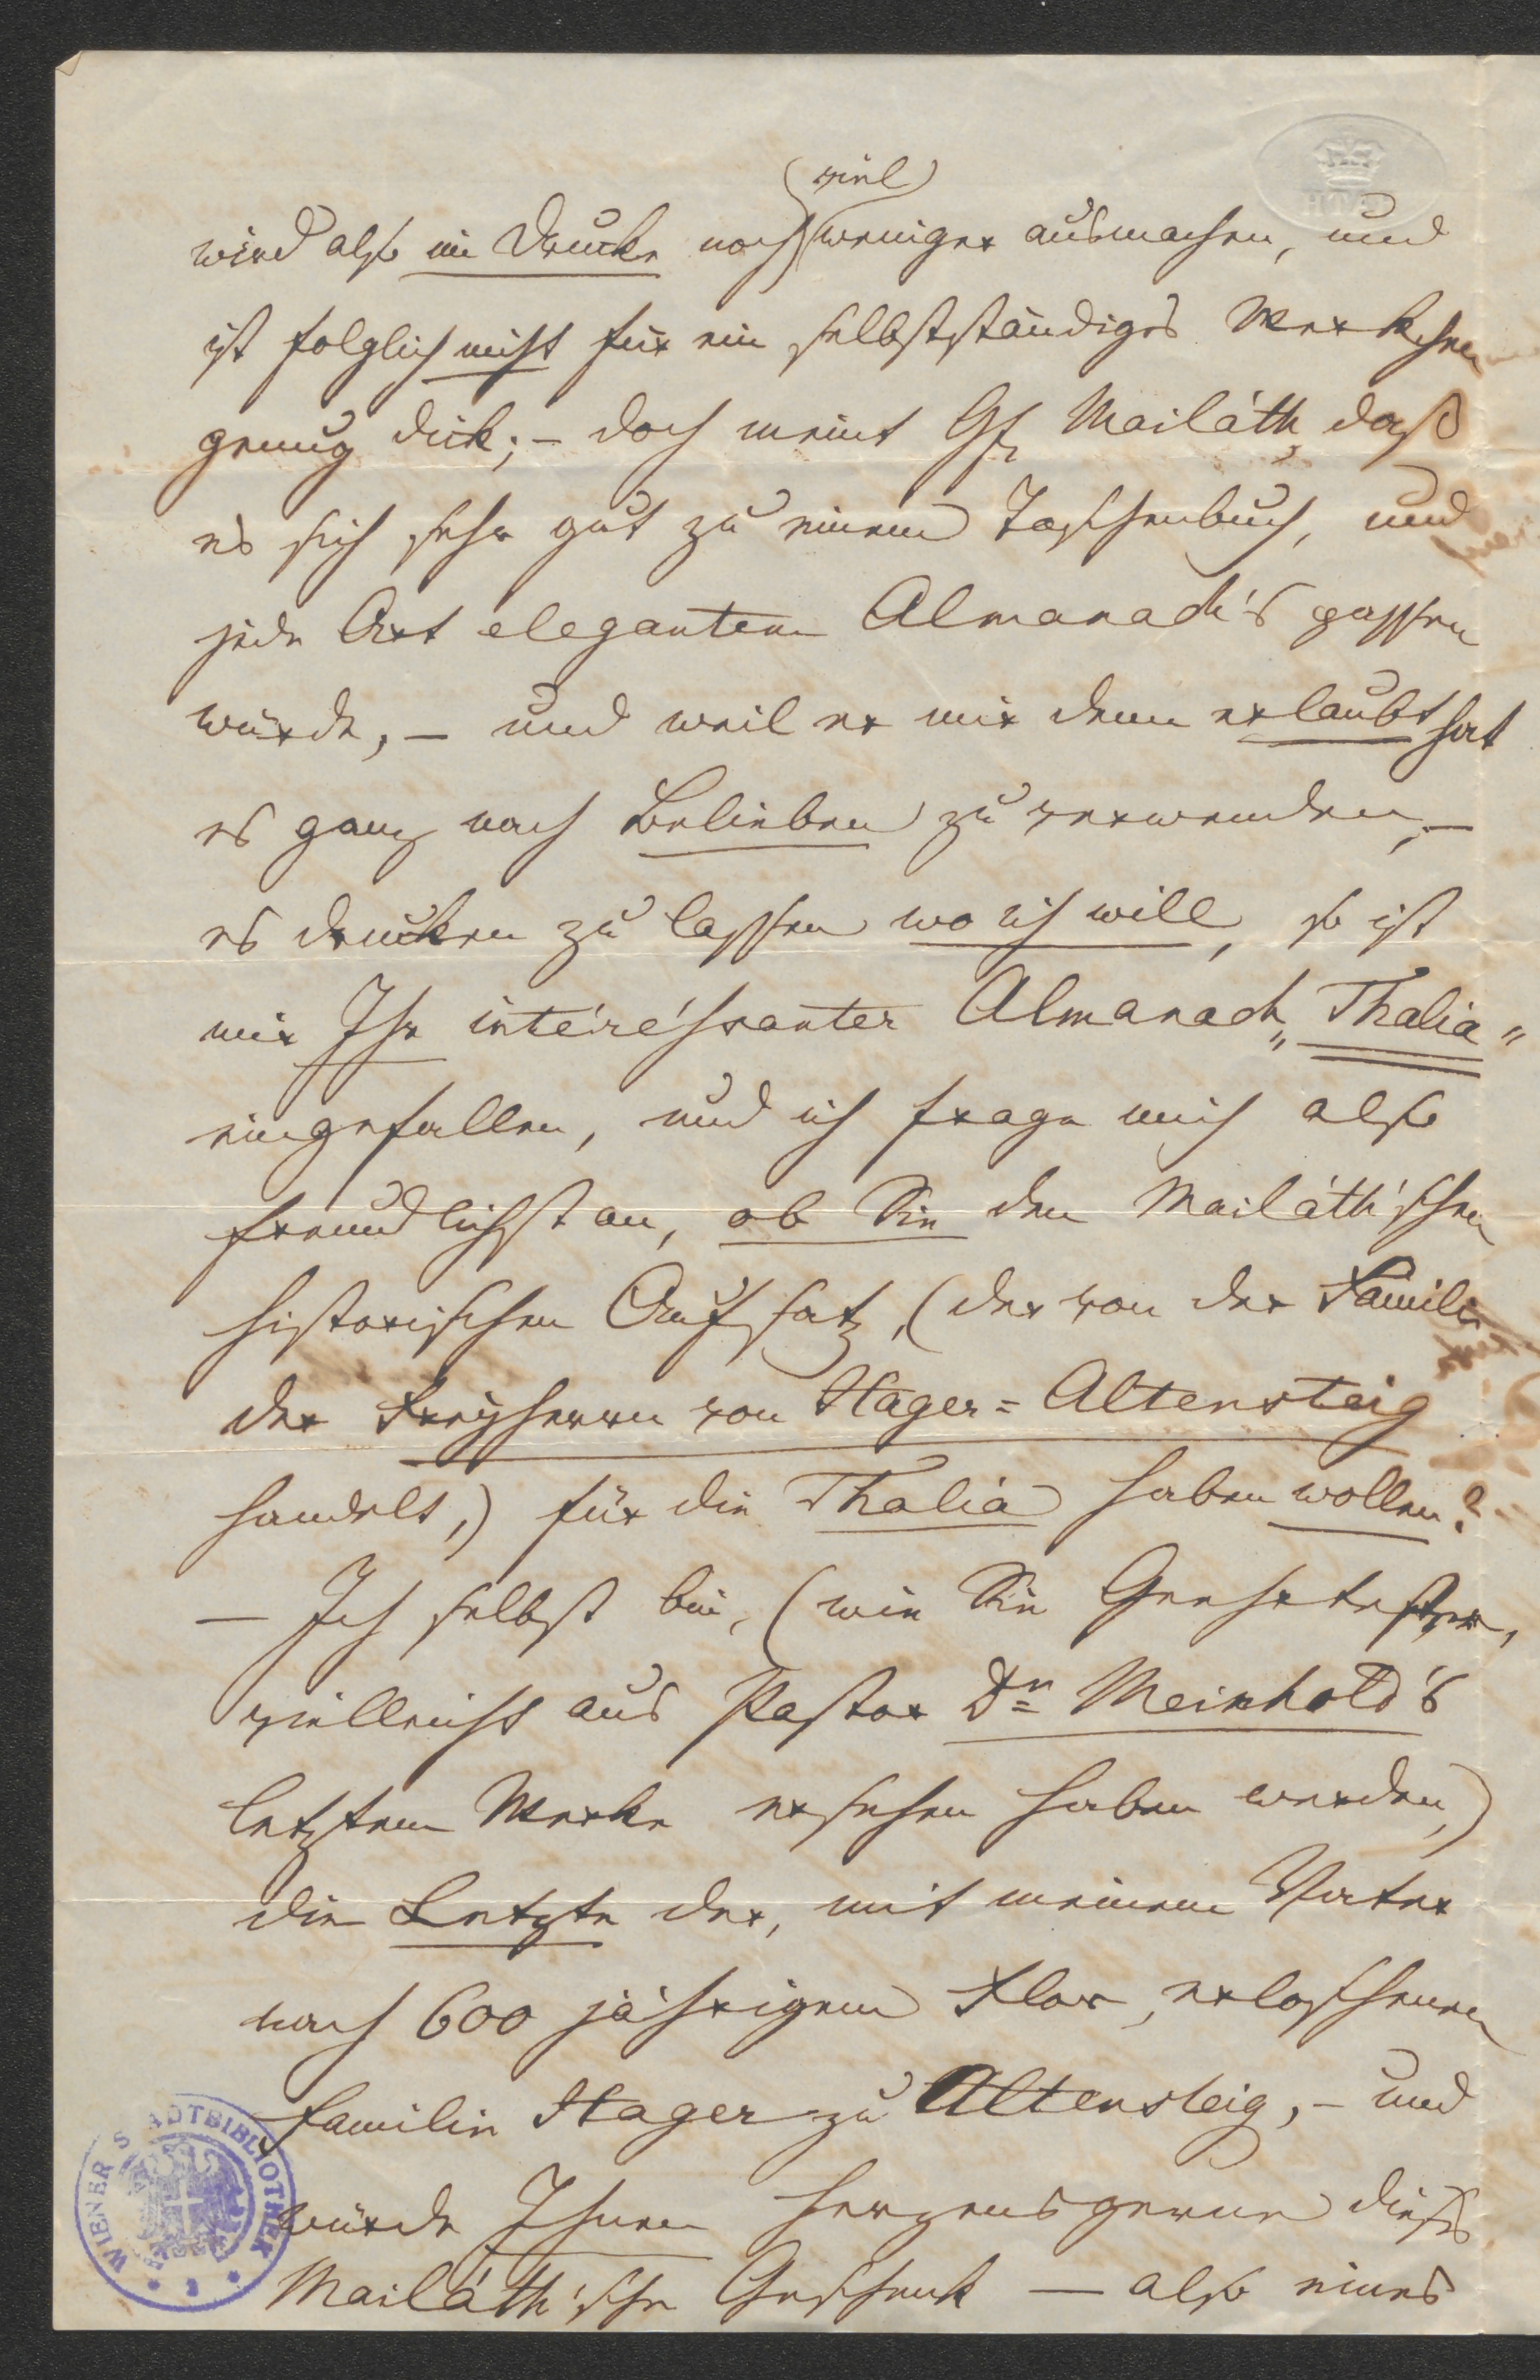 (viel)
wird also im Drucke noch weniger ausmachen, und
ist folglich nicht für ein selbstständiges Werkchen
genug dick; – doch meint Gf Mailáth, daß
es sich sehr gut zu einem Taschenbuch, und
jede Art eleganten Almanach's passen
würde, – und weil er mir denn erlaubt hat
es ganz nach Belieben zu verwenden, –
es drucken zu lassen wo ich will, so ist
mir Ihr intéréssanter Almanach „Thalia"
eingefallen, und ich frage mich also
freundlichst an, ob Sie den Mailáth'schen
historischen Aufsatz, (der von der Familie
der Freyherrn von Hager=Altensteig
handelt,) für die Thalia haben wollen?
– Ich selbst bin, (wie Sie Geehrtester,
vielleicht aus Pastor Dr Meinhold's
letztem Werke ersehen haben werden,)
die Letzte der, mit meinem Vater
nach 600 jährigem Flor, erloschenen
Familie Hager zu Altensteig, – und
würde Ihnen herzensgerne dieß
Mailáth'sche Geschenk – also eines
WIENER STADTBIBLIOTHEK